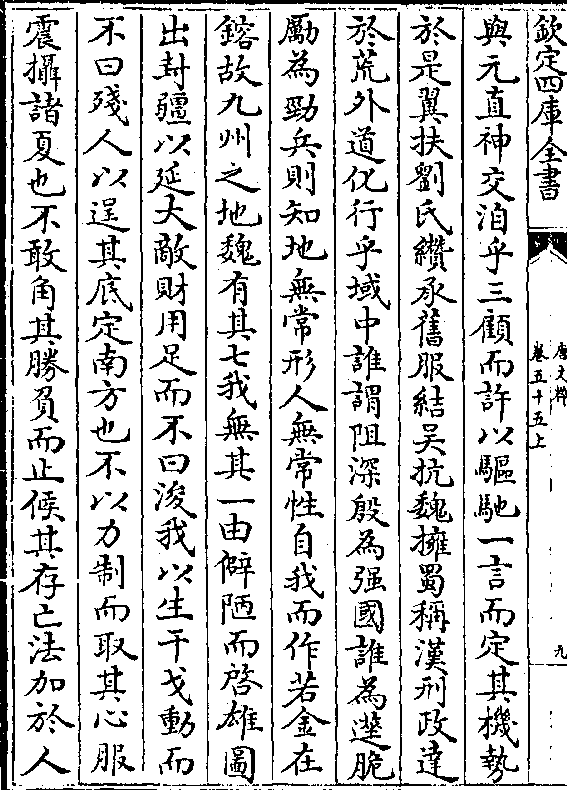 欽定四庫全書
唐文粹
卷五十五上
九
與元直神交洎乎三顧而許以驅馳一言而定其機勢
於是翼扶劉氏纘承舊服結吴抗魏擁蜀稱漢刑政達
於荒外道化行乎域中誰謂阻深殷為强國誰為𨗿脆
勵為勁兵則知地無常形人無常性自我而作若金在
鎔故九州之地魏有其七我無其一由僻陋而啓雄圖
出封疆以延大敵財用足而不曰浚我以生干戈動而
不曰殘人以逞其底定南方也不以力制而取其心服
震攝諸夏也不敢角其勝負而止候其存亡法加於人